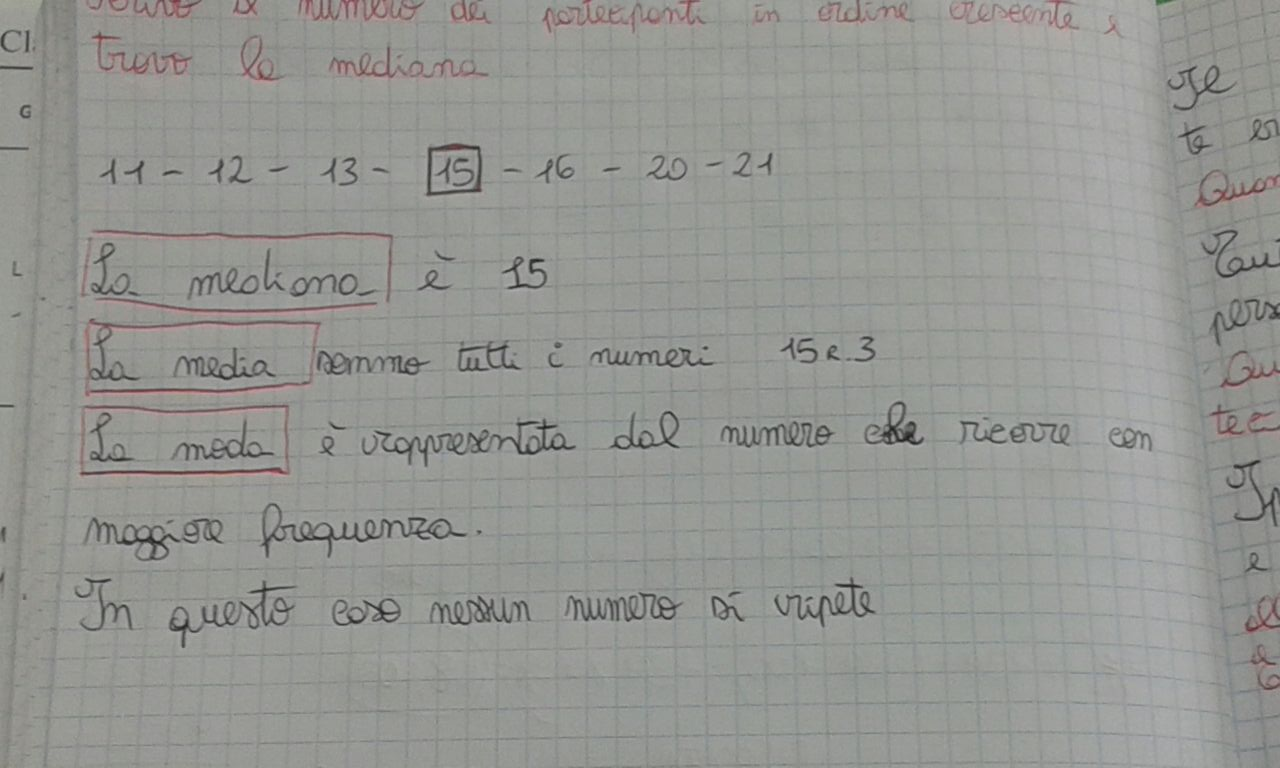 numero dei partecipanti in ordine crescente e
trovo la mediana
11 - 12 - 13 - 15 - 16 - 20 - 21
La mediana è 15
La media sommo tutti i numeri 15 R. 3
La moda è rappresentata dal numero che ricorre con
maggiore frequenza.
In questo caso nessun numero si ripete
Cl.
G
L
Il
te